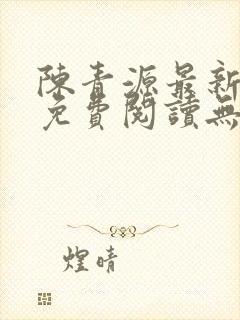 陳青源最新
免費閱讀無
煌晴